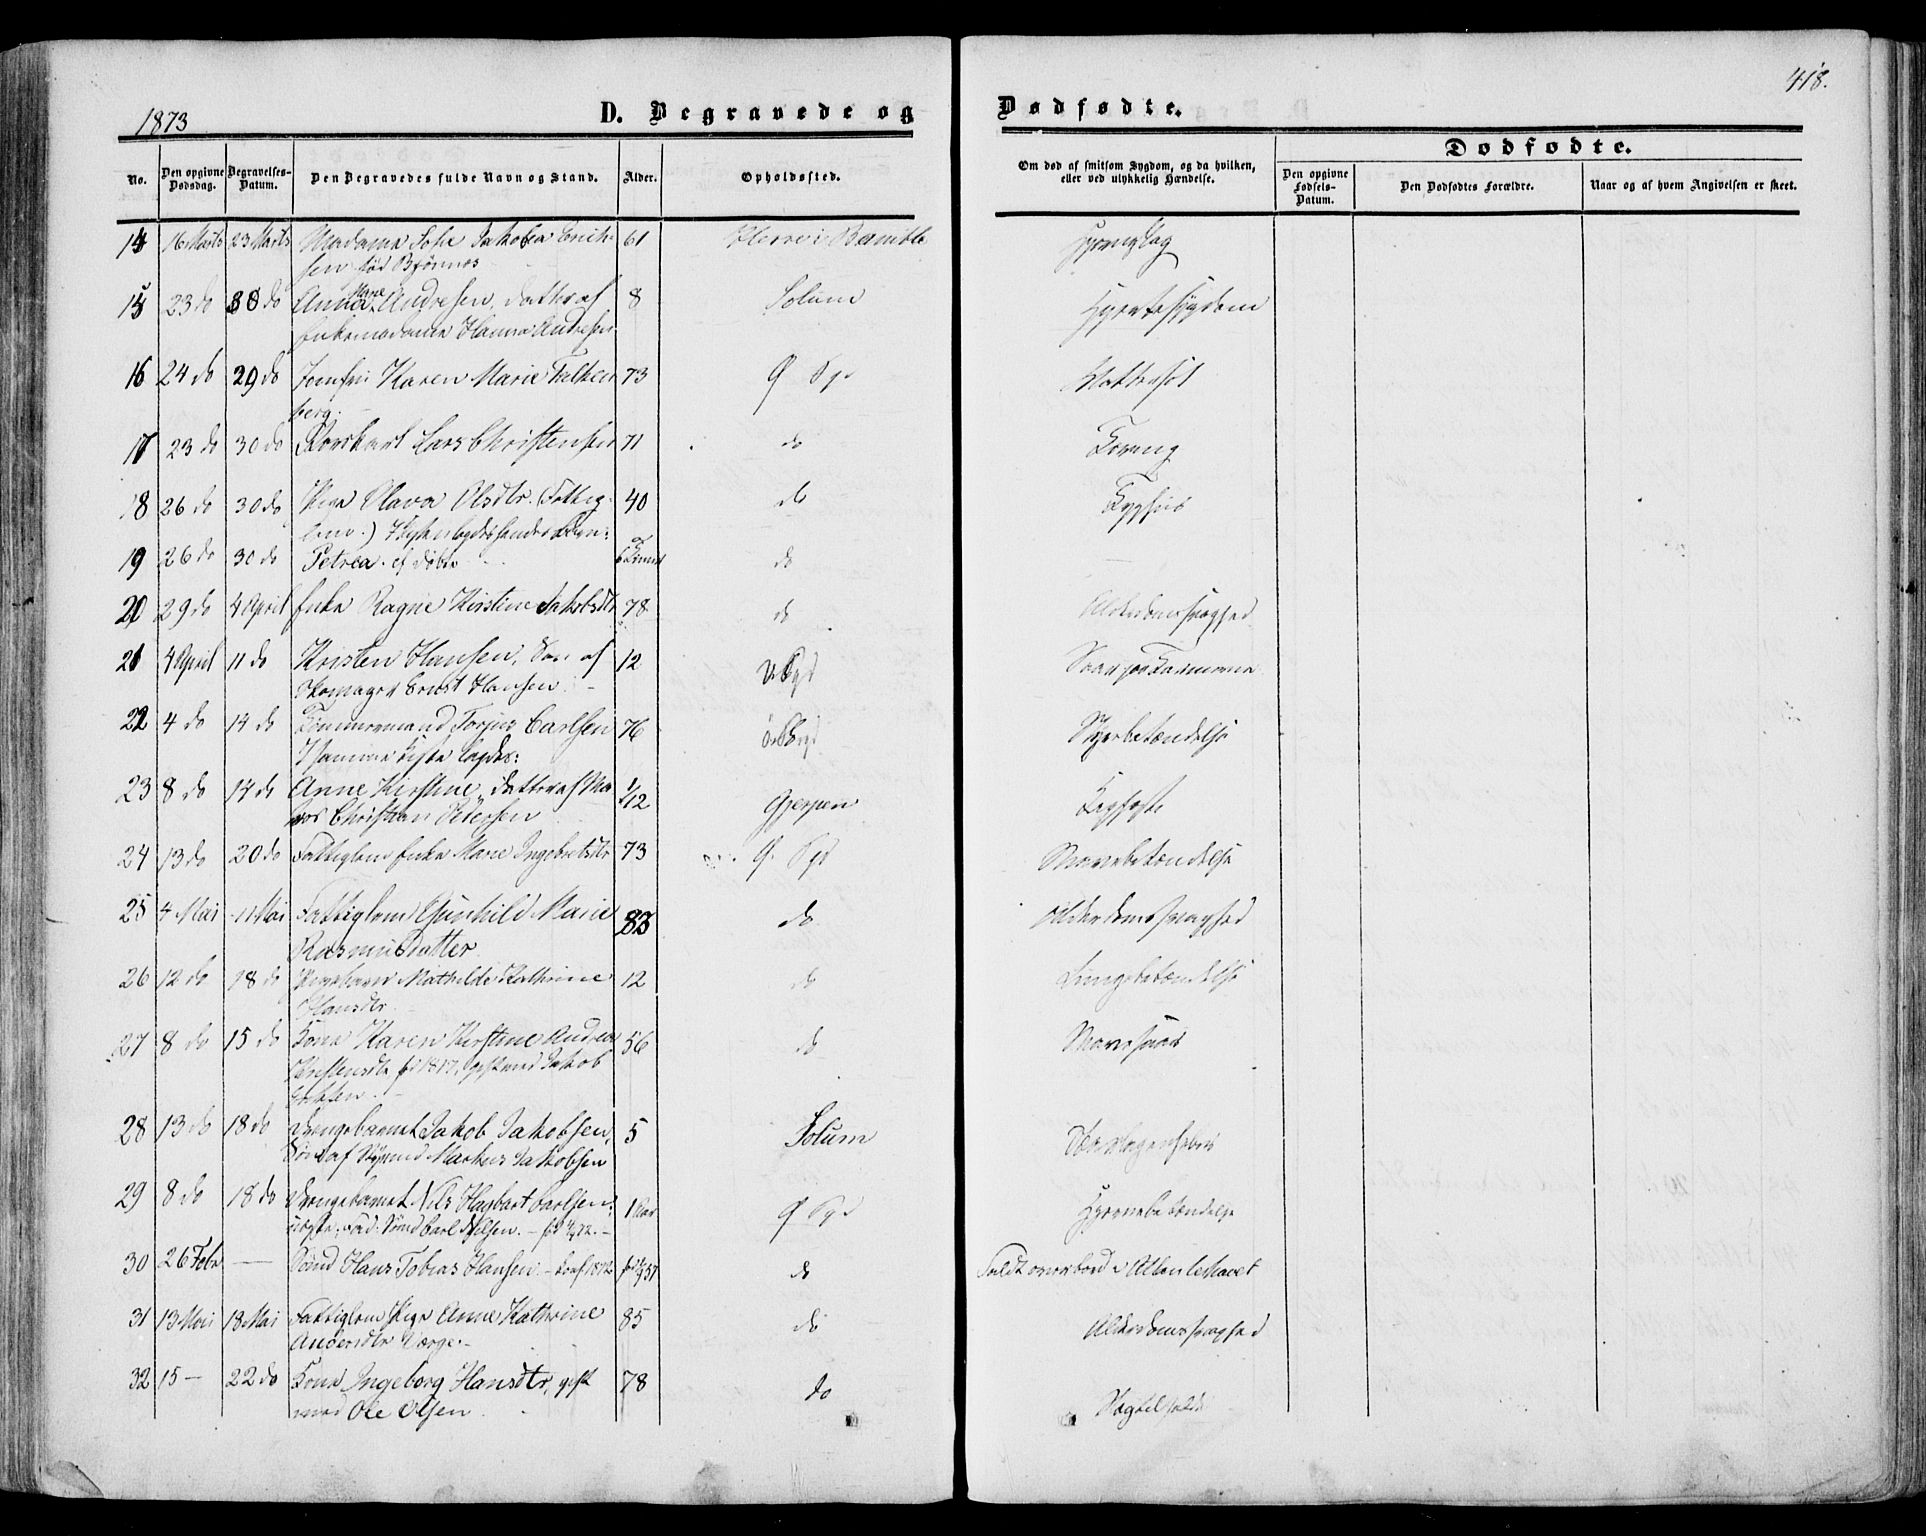 1873
D. Begravede og
Dødfødte.
418.
No.
Den opgivne Dødsdag.
Begravelses-Datum.
Den Begravedes fulde Navn og Stand.
Alder.
Opholdssted.
Om død af smitsom Sygdom, og da hvilken, eller ved ulykkelig Hændelse.
Dødfødte.
Den opgivne Fødsels-Datum.
Den Dødfødtes Forældre.
Naar og af hvem Angivelsen er skeet.
14 16 Marts 23 Marts Madame Sofie Jakobea Erich- 61 Herre i Bamble
sen fød Bjønnes
15 23 do 30 do Anna Marie Andresen, Datter af 8 Solum Hjertesygdom
Enkemadame Hanna Andresen
16 24 do 29 do Jomfru Karen Marie Falken 73 Ø Byd Vattersot
berg.
17 23 do 30 do Lars Christensen 71 do Tæring
18 26 do 30 do Pige Olava Olsdtr. (Fattig- 40 do Typhus
lem.) I Kisten lagdes hendes Barn:
19 26 do 30 do Petrea. ej døbt do
20 29 do 4 April Enke Ragne Kirstine Jakobsdtr 78 do Alderdomssvaghed
21 4 April 11 do Kristen Hansen, Søn af 12 V Byd
Skomager Ernst Hansen
22 4 do 14 do Tømmermand Torjus Carlsen 76 Ø Byd
I samme Kiste lagdes:
23 8 do 14 do Anne Kirstine, Datter af Ma- 1/12 Gjerpen
Christian Petersen
24 13 do 20 do Fattiglem Enke Marie Ingebretsdtr 73 Ø. Byd Mavebetændelse
25 4 Mai 11 Mai Fattiglem Gunhild Marie 83 do Alderdomssvaghed
Rasmusdatter
26 12 do 18 do Pigebarn Mathilde Kathrine 12 do Lungebetændelse
Hansdtr.
27 8 do 15 do Kone Karen Kirstine Andrea 56 do Mavesaar
Kristensdtr fd 1817, gift med Jakob
28 13 do 18 do Drengebarnet Jakob Jakobsen, 5 Solum
Søn af Styrmd Markus Jakobsen
29 8 do 18 do Drengebarnet Nils Hagbart Carlsen: 1 Aar Ø Byd Hjernebetændelse
ægte, Fad: Sømd Carl Nilsen.
30 26 Febr — Sømd Hans Tobias Hansen do Faldt overbord i Atlanterhavet
31 13 Mai 18 Mai Fattiglem Pige Anne Kathrine 85 do Alderdomssvaghed
Andersdtr Værge.
32 15 — 22 do Kone Ingeborg Hansdtr, gift 78 do
med Ole Olsen